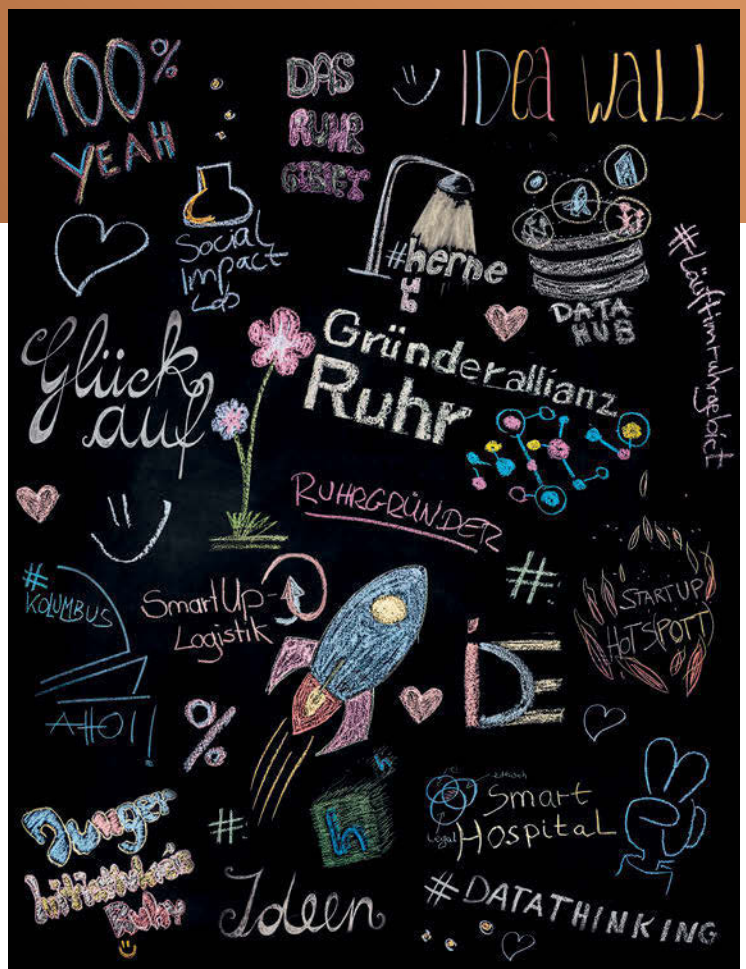 100%
YEAH
DAS
RUHR
GEBIET
IDea WaLL
Social
Impact
Lab
#herne
DATA
HUB
#Läuftimruhrgebiet
Glück
auf
Gründerallianz
Ruhr
RUHRGRÜNDER
#
KOLUMBUS
AHOI!
SmartUp-
Logistik
#
STARTUP
HOTS(POTT)
iDE
%
Junger
Initiativkreis
Ruhr
#
h
h
Ideen
Legal
Smart
Hospital
#DATATHINKING